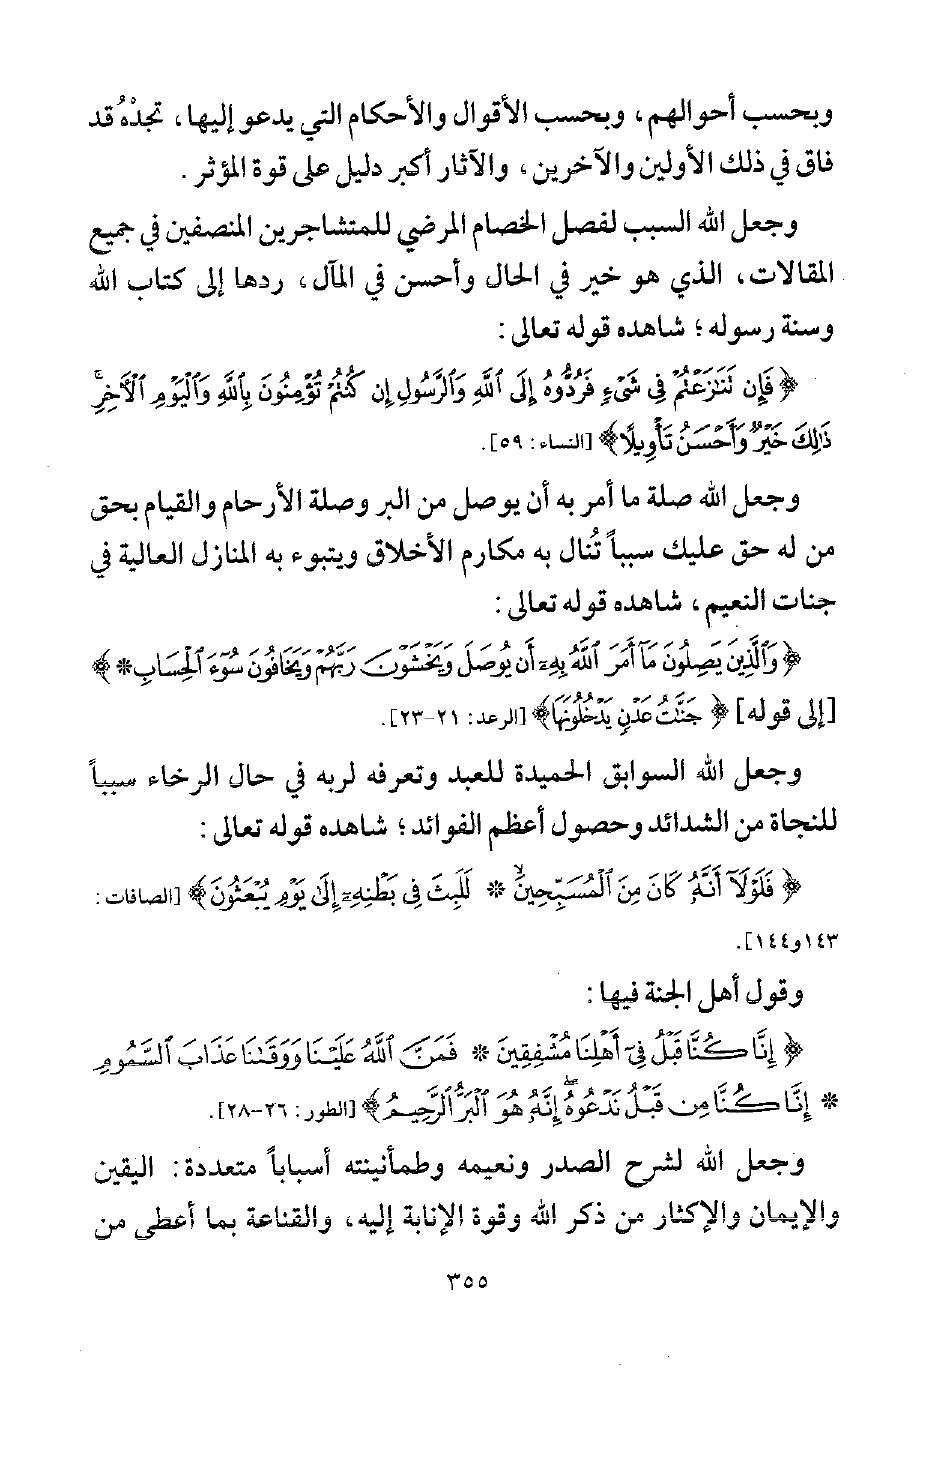 وبحسب أحوالهم، وبحسب الأقوال والأحكام التي يدعو إليها، تجدْهُ قد
فاق في ذلك الأولين والآخرين، والآثار أكبر دليل على قوة المؤثر.
وجعل الله السبب لفصل الخصام المرضي للمتشاجرين المنصفين في جميع
المقالات، الذي هو خير في الحال وأحسن في المآل، ردها إلى كتاب الله
وسنة رسوله؛ شاهده قوله تعالى:
﴿فَإِن تَنَٰزَعْتُمْ فِي شَيْءٍ فَرُدُّوهُ إِلَى ٱللَّهِ وَٱلرَّسُولِ إِن كُنتُمْ تُؤْمِنُونَ بِٱللَّهِ وَٱلْيَوْمِ ٱلْأَخِرِۚ
ذَٰلِكَ خَيْرٌ وَأَحْسَنُ تَأْوِيلًا﴾ [النساء: ٥٩].
وجعل الله صلة ما أمر به أن يوصل من البر وصلة الأرحام والقيام بحق
من له حق عليك سبباً تُنال به مكارم الأخلاق ويتبوء به المنازل العالية في
جنات النعيم، شاهده قوله تعالى:
﴿وَٱلَّذِينَ يَصِلُونَ مَآ أَمَرَ ٱللَّهُ بِهِۦٓ أَن يُوصَلَ وَيَخْشَوْنَ رَبَّهُمْ وَيَخَافُونَ سُوٓءَ ٱلْحِسَابِ * ﴾
[إلى قوله] ﴿جَنَّٰتُ عَدْنٍ يَدْخُلُونَهَا﴾ [الرعد: ٢١-٢٣].
وجعل الله السوابق الحميدة للعبد وتعرفه لربه في حال الرخاء سبباً
للنجاة من الشدائد وحصول أعظم الفوائد؛ شاهده قوله تعالى:
﴿فَلَوْلَآ أَنَّهُۥ كَانَ مِنَ ٱلْمُسَبِّحِينَۙ * لَلَبِثَ فِي بَطْنِهِۦٓ إِلَىٰ يَوْمِ يُبْعَثُونَ﴾ [الصافات:
١٤٣ و١٤٤].
وقول أهل الجنة فيها:
﴿إِنَّا كُنَّا قَبْلُ فِيٓ أَهْلِنَا مُشْفِقِينَ * فَمَنَّ ٱللَّهُ عَلَيْنَا وَوَقَىٰنَا عَذَابَ ٱلسَّمُومِ
* إِنَّا كُنَّا مِن قَبْلُ نَدْعُوهُۖ إِنَّهُۥ هُوَ ٱلْبَرُّ ٱلرَّحِيمُ﴾ [الطور: ٢٦-٢٨].
وجعل الله لشرح الصدر ونعيمه وطمأنينته أسباباً متعددة: اليقين
والإيمان والإكثار من ذكر الله وقوة الإنابة إليه، والقناعة بما أعطى من
٣٥٥